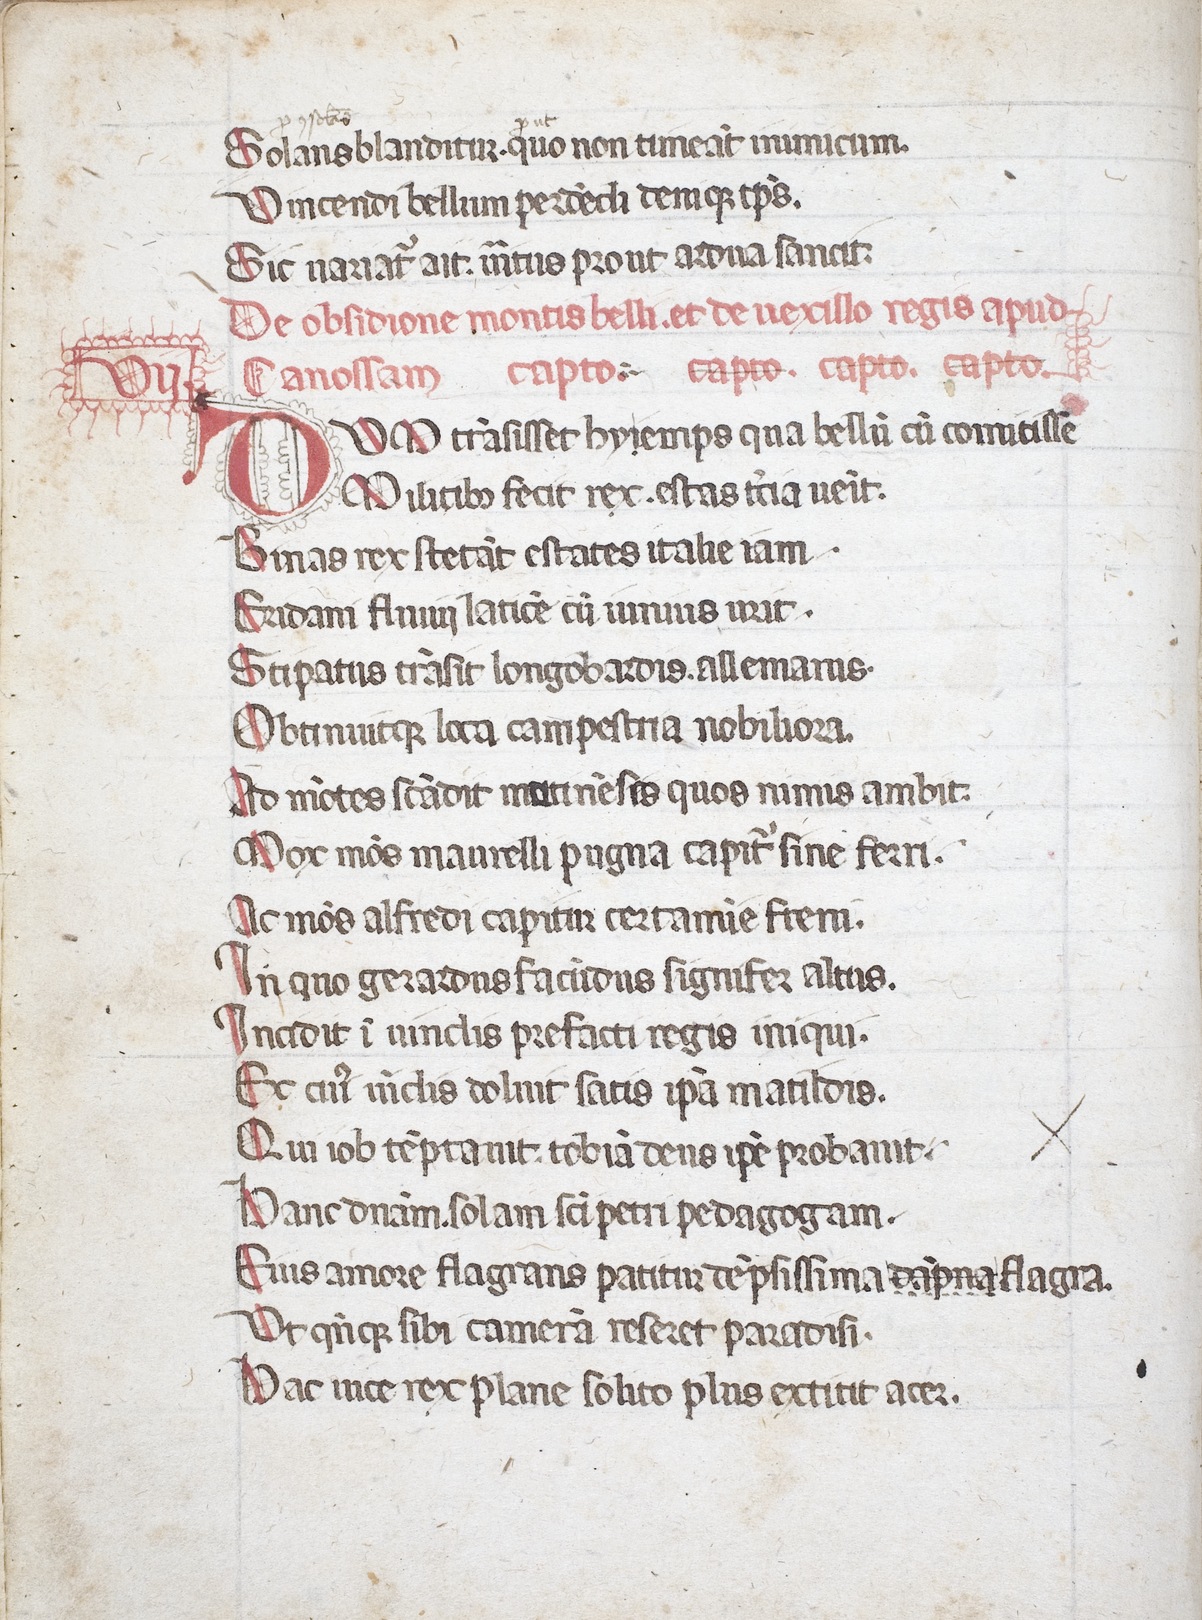 ꝓ ꝯsolās ꝓut
Solans blanditur. quo non timeāt inimicum.
Vincendi bellum perdēdi deniqꝫ tp̄s.
Sic uariat᷑ ait. mītus prout ardua sancit.
De obsidione montis belli. et de uexillo regis apud
Vij Canossam capto. capto. capto. capto.
DVM trāsisset hyiemps qua bellū cū comitisse
Militibꝫ fecit rex. estas t̄cia uēit.
Binas rex stetāt estates italie iam.
Eridani fluuij laticē cū uimus urit.
Stipatus trāsit longobardis. allemanis.
Obtinuitqꝫ loca campestria nobiliora.
Ad mōtes scādit mutinēses quos nimis ambit.
Mox mōs maurelli pugna capit᷑ sine ferri.
Ac mōs alfredi capitur certamīe freni.
In quo gerardus facūdus signifer altus.
Incidit ī uinclis prefacti regis iniqui.
Ex cui᷒ uīclis doluit satis ip̄a matildis.
Qui iob tēptauit. tobiā deus ip̄e probauit.
Hanc dn̄am. solam sc̄i petri pedagogam.
Eius amore flagrans patitur dēpsissima dāpna flagra.
Vt qn̄qꝫ sibi camerā reseret paradisi.
Hac uice rex plane solito plus extitit acer.